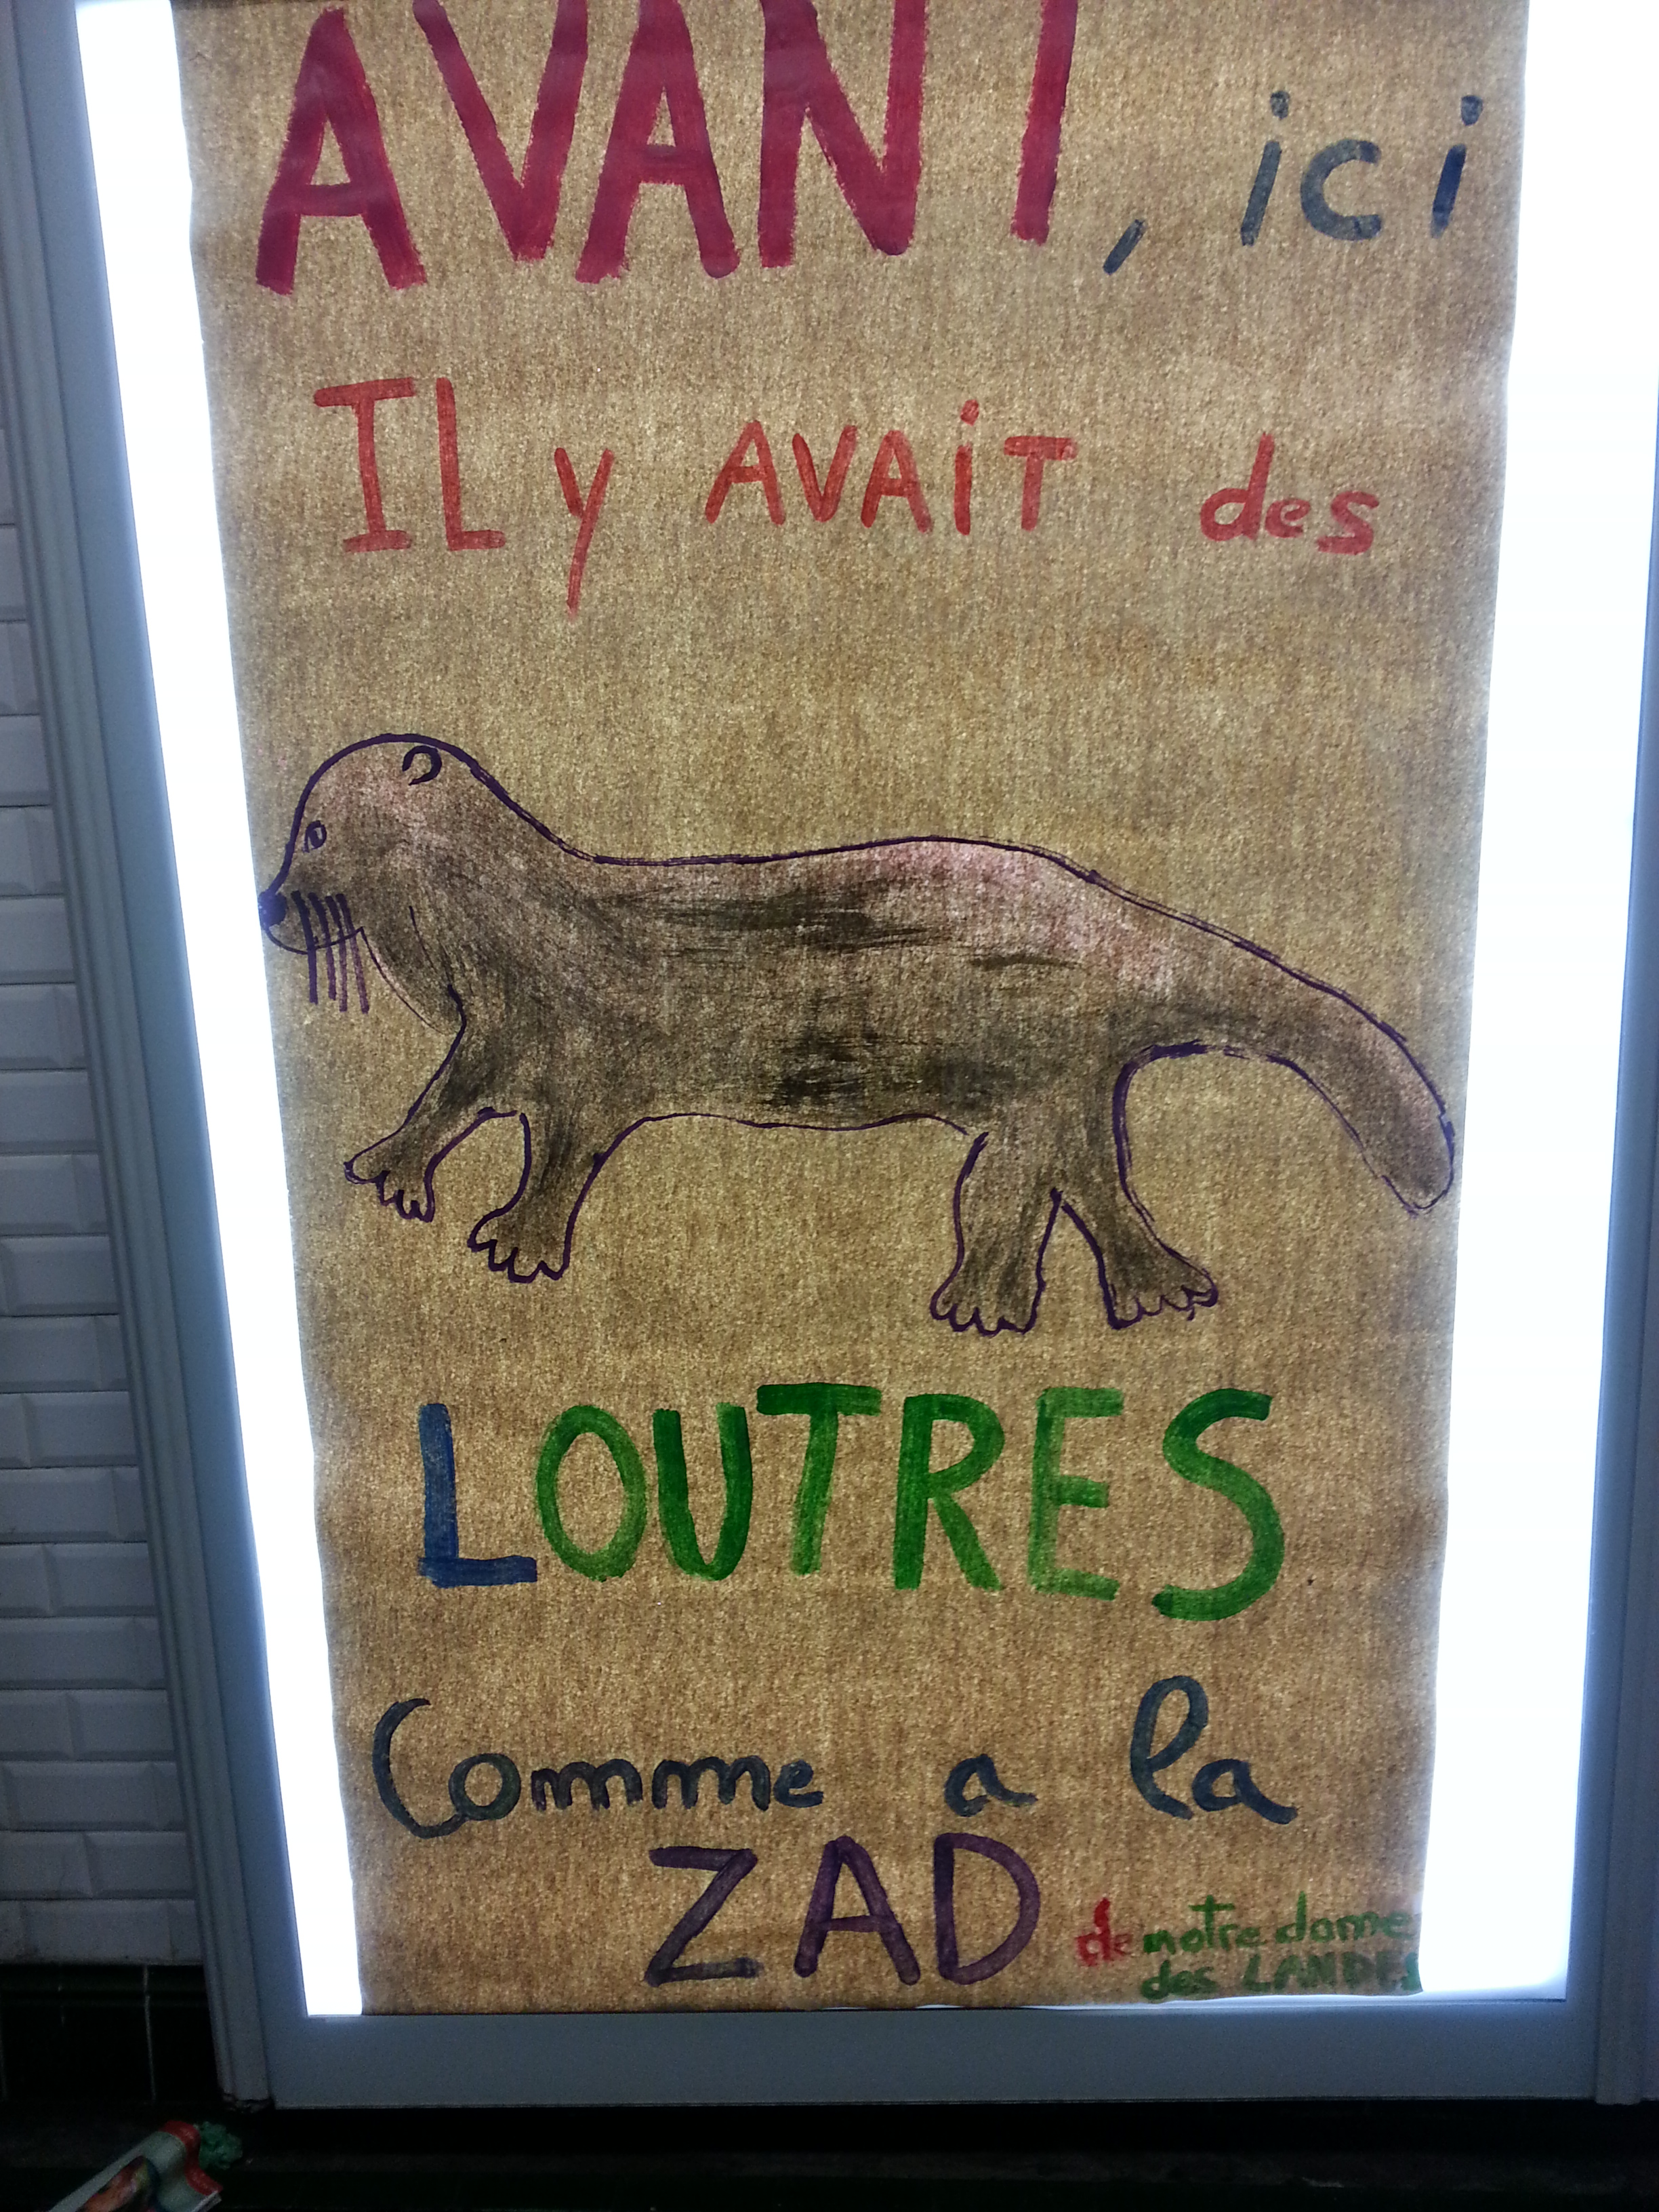 AVANT, ici
IL y AVAiT des
LOUTRES
Comme a la
ZAD de notre dame
des LANDES